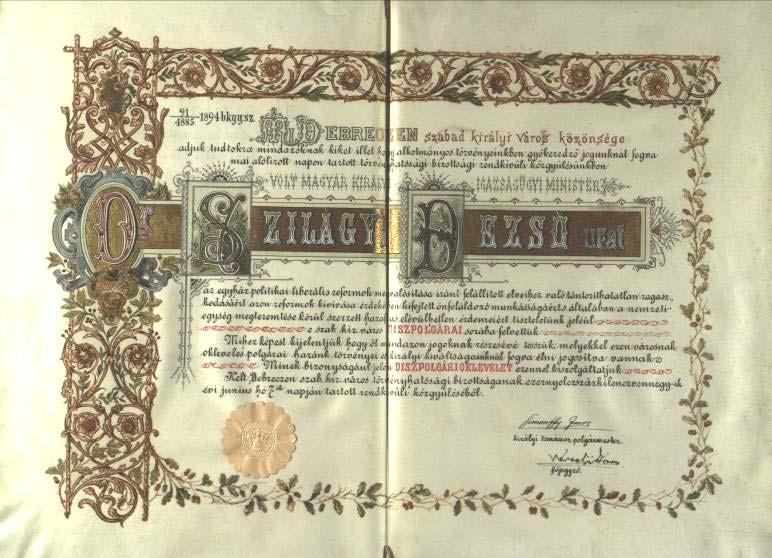 91/4885 - 1894 bkgy.sz.
MI DEBRECZEN szabad királyi Város közönsége
adjuk tudtokra mindazoknak kiket illet hogy alkotmányos törvényeinkben gyökeredző jogunknál fogva
mai alólirott napon tartott törvényhatósági bizottsági rendkivüli közgyülésünkben
VOLT MAGYAR KIRÁLYI IGAZSÁGÜGYI MINISTER
Dr. SZILÁGYI DEZSŐ urat
az egyház politikai liberális reformok megvalósitása iránt felállitott elveihez való tántorithatlan ragasz,
kodásáért azon reformok kivivása érdekében kifejtett önfeláldozó munkásságáért s általában a nemzeti
egység megteremtése körül szerzett hazafias elévülhetlen érdemeiért tiszteletünk jeléül
e szab. kir. város DISZPOLGÁRAI sorába felvettük
Mihez képest kijelentjük hogy őt mindazon jogoknak részesévé tesszük, melyekkel ezen városnak
okleveles polgárai hazánk törvényei és királyi kiváltságainknál fogva élni jogositva vannak
Minek bizonyságául jelen DISZPOLGÁRI OKLEVELET ezennel kiszolgáltatjuk
Kelt Debreczen szab. kir. város törvényhatósági bizottságának ezernyolczszázkilenczvennégy-ik
évi junius hó 7-ik napján tartott rendkivüli közgyüléséből.
Simonffy Imre
királyi tanácsos, polgármester.
főjegyző.